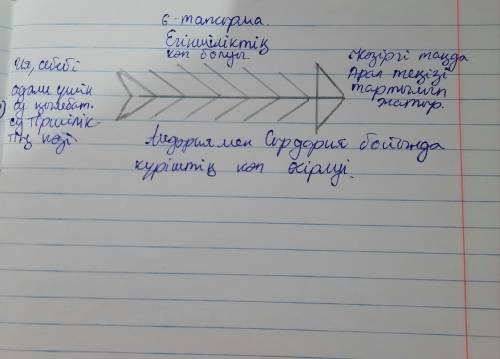 6-тапсырма.
Егіншіліктің
көп болуы.
Иә, себебі
адам үшін
су қымбат.
су тіршілік-
тің көзі
Қазіргі таңда
Арал теңізі
тартылып
жатыр.
Амудария мен Сырдария бойында
күріштің көп егілуі.